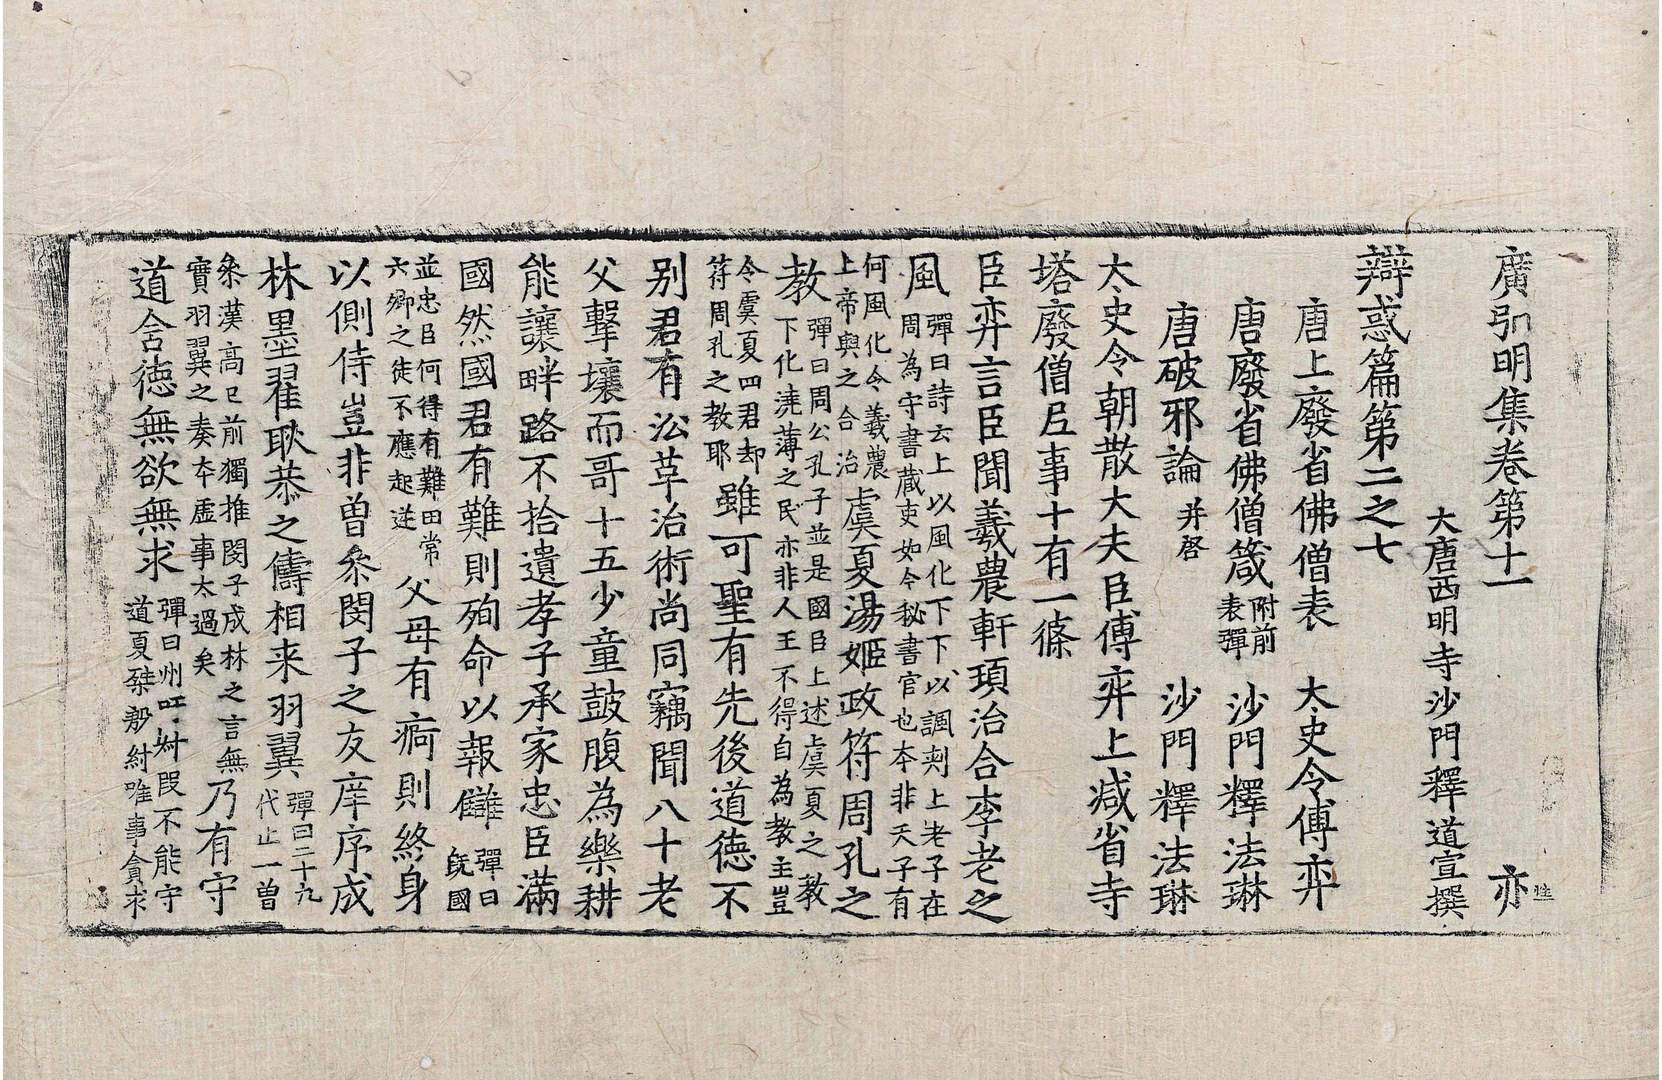 廣弘明集卷第十一 亦
大唐西明寺沙門釋道宣撰
辯惑篇第二之七
唐上廢省佛僧表 太史令傅弈
唐廢省佛僧箴 附前表彈 沙門釋法琳
唐破邪論 并啓 沙門釋法琳
太史令朝散大夫臣傅弈上减省寺
塔廢僧尼事十有一條
臣弈言臣聞羲農軒頊治合李老之
風 彈曰詩云上以風化下下以諷刺上老子在周為守書藏吏如今秘書官也本非天子有
何風化令羲農上帝與之合治 虞夏湯姬政符周孔之
教 彈曰周公孔子並是國臣上述虞夏之教下化澆薄之民亦非人王不得自為教主豈
令虞夏四君却符周孔之教耶 雖可聖有先後道德不
别君有沿革治術尚同竊聞八十老
父擊壤而哥十五少童鼓腹為樂耕
能讓畔路不拾遺孝子承家忠臣滿
國然國君有難則殉命以報讎 彈曰旣國
並忠臣何得有難田常六卿之徒不應起逆 父母有痾則終身
以側侍豈非曾叅閔子之友庠序成
林墨翟耿恭之儔相来羽翼 彈曰二十九代止一曾
叅漢高已前獨推閔子成林之言無實羽翼之奏本虛事太過矣 乃有守
道含徳無欲無求 彈曰州吁叔段不能守道夏桀殷紂唯事貪求